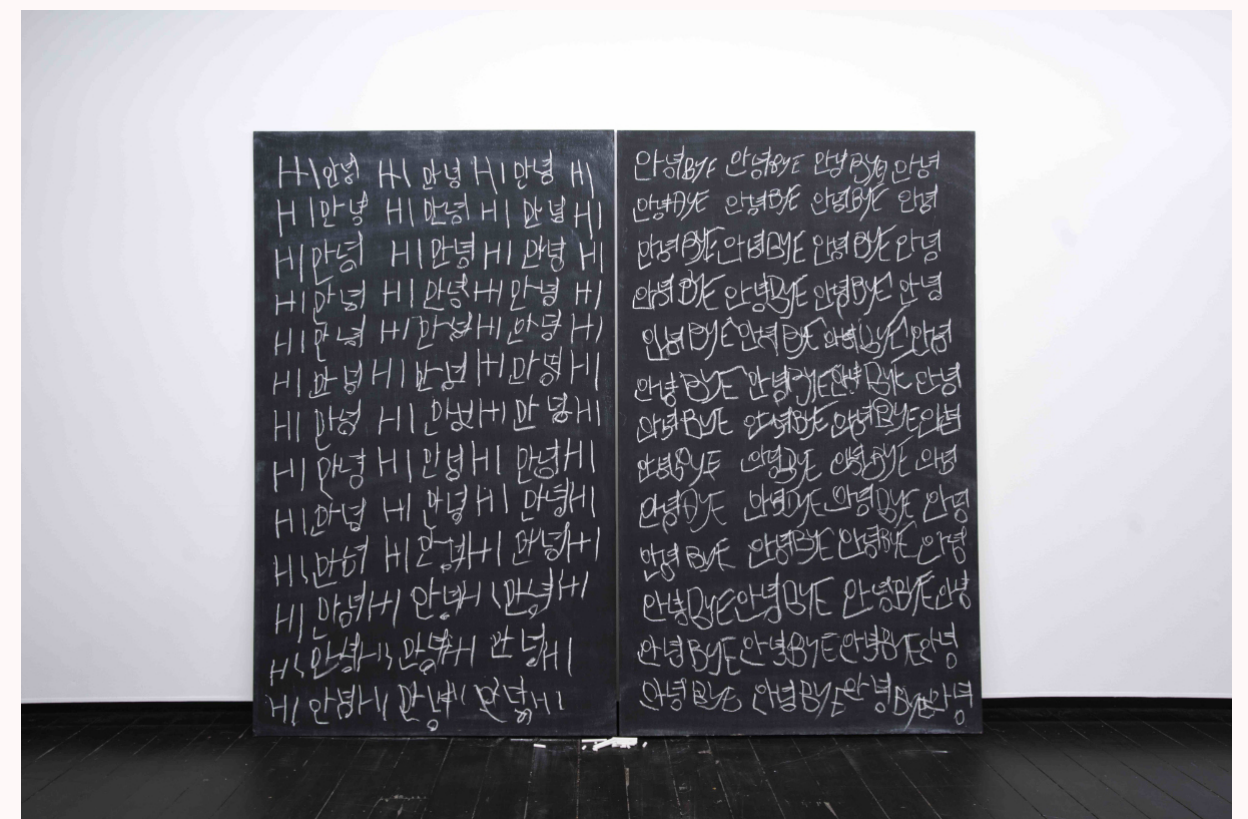 HI 안녕 HI 안녕 HI 안녕 HI
HI 안녕 HI 안녕 HI 안녕 HI
HI 안녕 HI 안녕 HI 안녕 HI
HI 안녕 HI 안녕 HI 안녕 HI
HI 안녕 HI 안녕 HI 안녕 HI
HI 안녕 HI 안녕 HI 안녕 HI
HI 안녕 HI 안녕 HI 안녕 HI
HI 안녕 HI 안녕 HI 안녕 HI
HI 안녕 HI 안녕 HI 안녕 HI
HI 안녕 HI 안녕 HI 안녕 HI
HI 안녕 HI 안녕 HI 안녕 HI
HI 안녕 HI 안녕 HI 안녕 HI
HI 안녕 HI 안녕 HI 안녕 HI
안녕 BYE 안녕 BYE 안녕 BYE 안녕
안녕 BYE 안녕 BYE 안녕 BYE 안녕
안녕 BYE 안녕 BYE 안녕 BYE 안녕
안녕 BYE 안녕 BYE 안녕 BYE 안녕
안녕 BYE 안녕 BYE 안녕 BYE 안녕
안녕 BYE 안녕 BYE 안녕 BYE 안녕
안녕 BYE 안녕 BYE 안녕 BYE 안녕
안녕 BYE 안녕 BYE 안녕 BYE 안녕
안녕 BYE 안녕 BYE 안녕 BYE 안녕
안녕 BYE 안녕 BYE 안녕 BYE 안녕
안녕 BYE 안녕 BYE 안녕 BYE 안녕
안녕 BYE 안녕 BYE 안녕 BYE 안녕
안녕 BYE 안녕 BYE 안녕 BYE 안녕